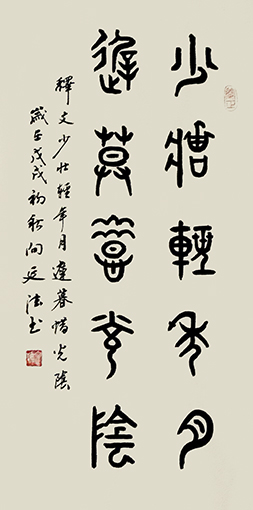 少壮轻年月
遲暮惜光陰
釋文少壮轻年月遲暮惜光陰
歲在戊戌初秋向廷法书